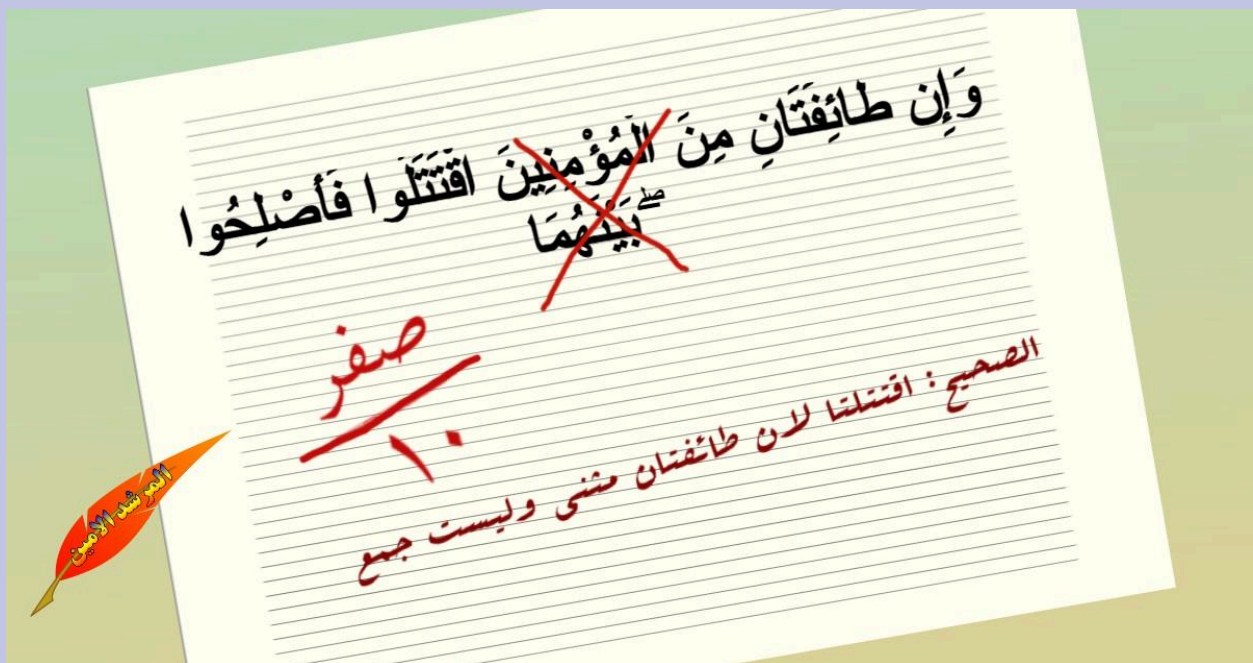 وَإِن طَائِفَتَانِ مِنَ الْمُؤْمِنِينَ اقْتَتَلُوا فَأَصْلِحُوا
بَيْنَهُمَا ۖ
صفر
١٠
الصحيح : اقتتلتا لان طائفتان مثنى وليست جمع
المرشد الامين